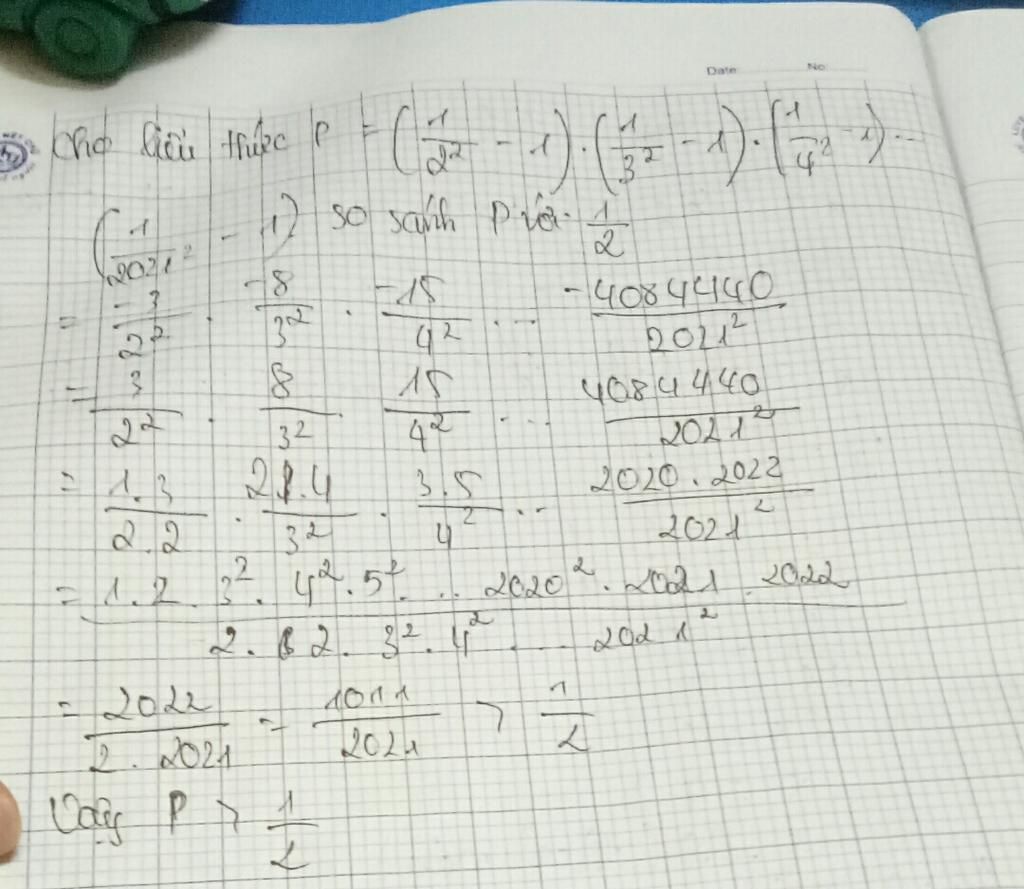 Date No
Cho biểu thức P = (1/2² - 1) . (1/3² - 1) . (1/4² - 1) ...
(1/2021² - 1) so sánh P với 1/2
= -3/2² . -8/3² . -15/4² ... -4084440/2021²
= 3/2² . 8/3² . 15/4² ... 4084440/2021²
= 1.3/2.2 . 2.4/3² . 3.5/4² ... 2020.2022/2021²
= 1.2.3².4².5²... 2020².2021.2022/2.2.3².4²...2021²
= 2022/2.2021 = 1011/2021 > 1/2
Vậy P > 1/2